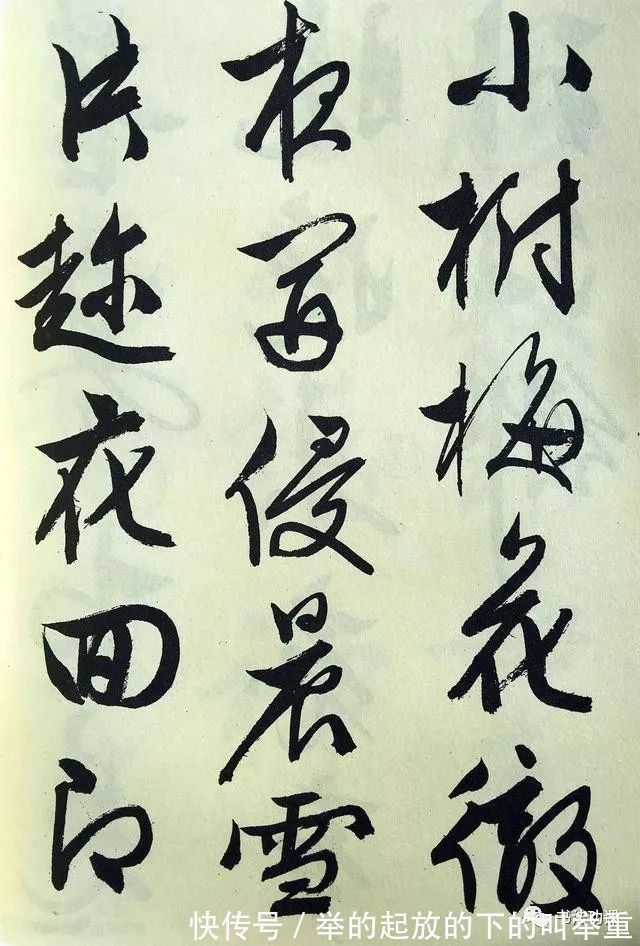 小树梅花彻
夜开侵晨雪
片趁花回即
快传号 / 举的起放的下的叫举重